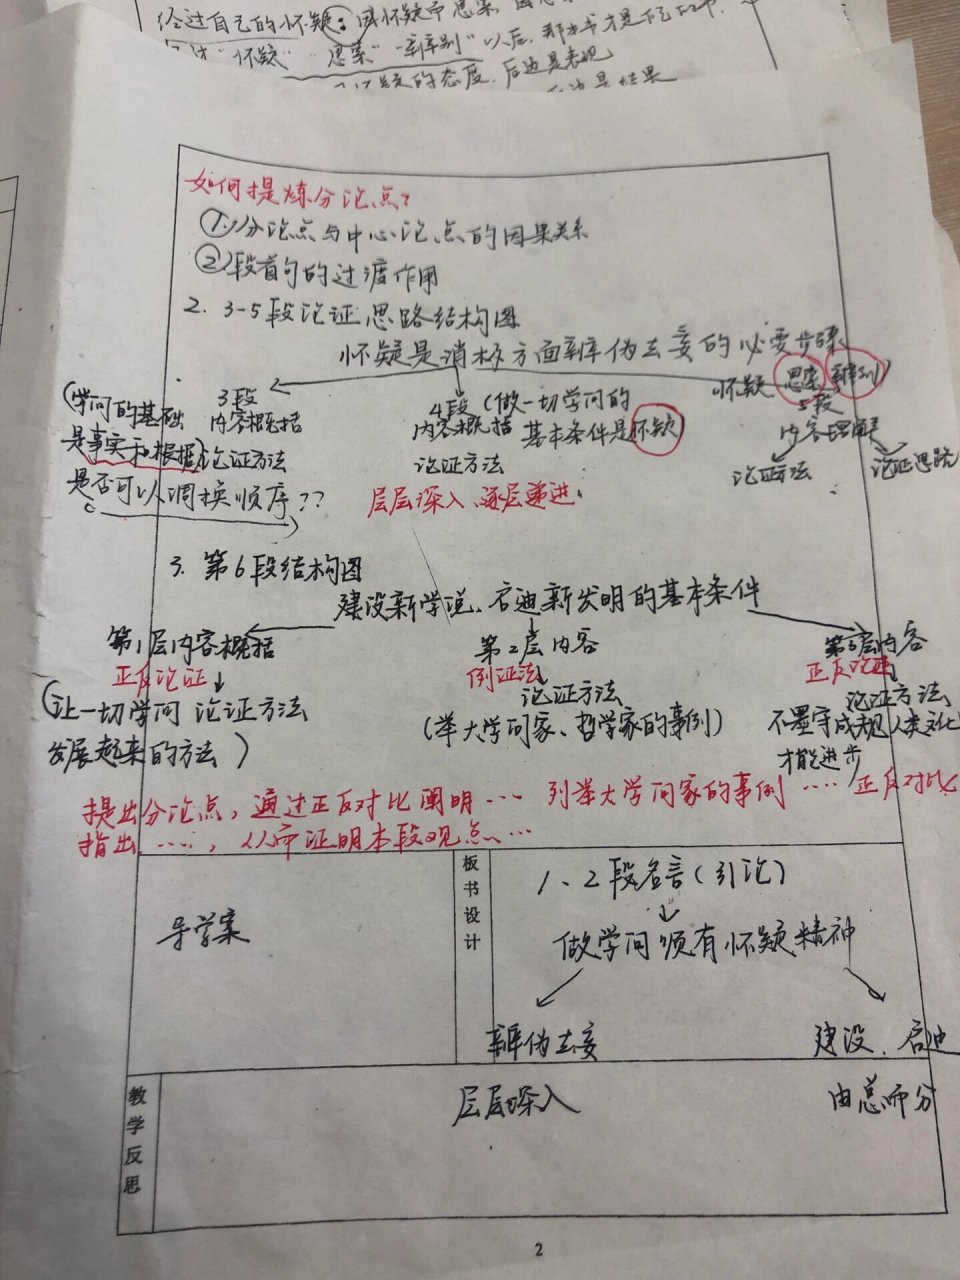 经过自己的怀疑：因怀疑而思索
"怀疑" "思索" "辨别"以后，那
的态度，后边是表现
是结果
如何提炼分论点？
①分论点与中心论点的因果关系
②段首句的过渡作用
2. 3-5段论证思路结构图
怀疑是消极方面辨伪去妄的必要步骤
怀疑 思索 辨别
(学问的基础 3段 4段 (做一切学问的 5段
是事实和根据) 内容概括 内容概括 基本条件是怀疑) 内容理解
论证方法 论证方法 论证方法 论证思路
是否可以调换顺序？？ 层层深入、逐层递进
3. 第6段结构图
建设新学说、启迪新发明的基本条件
第1层内容概括 第2层内容 第3层内容
正反论证 例证法 正反论证
(让一切学问 论证方法 论证方法 论证方法
发展起来的方法) (举大学问家、哲学家的事例) 不墨守成规人类文化
才能进步
提出分论点，通过正反对比阐明…… 列举大学问家的事例…… 正反对比
指出……，从而证明本段观点……
导学案
板书设计
1、2段名言(引论)
做学问须有怀疑精神
辨伪去妄 建设、启迪
教学反思
层层深入 由总而分
2